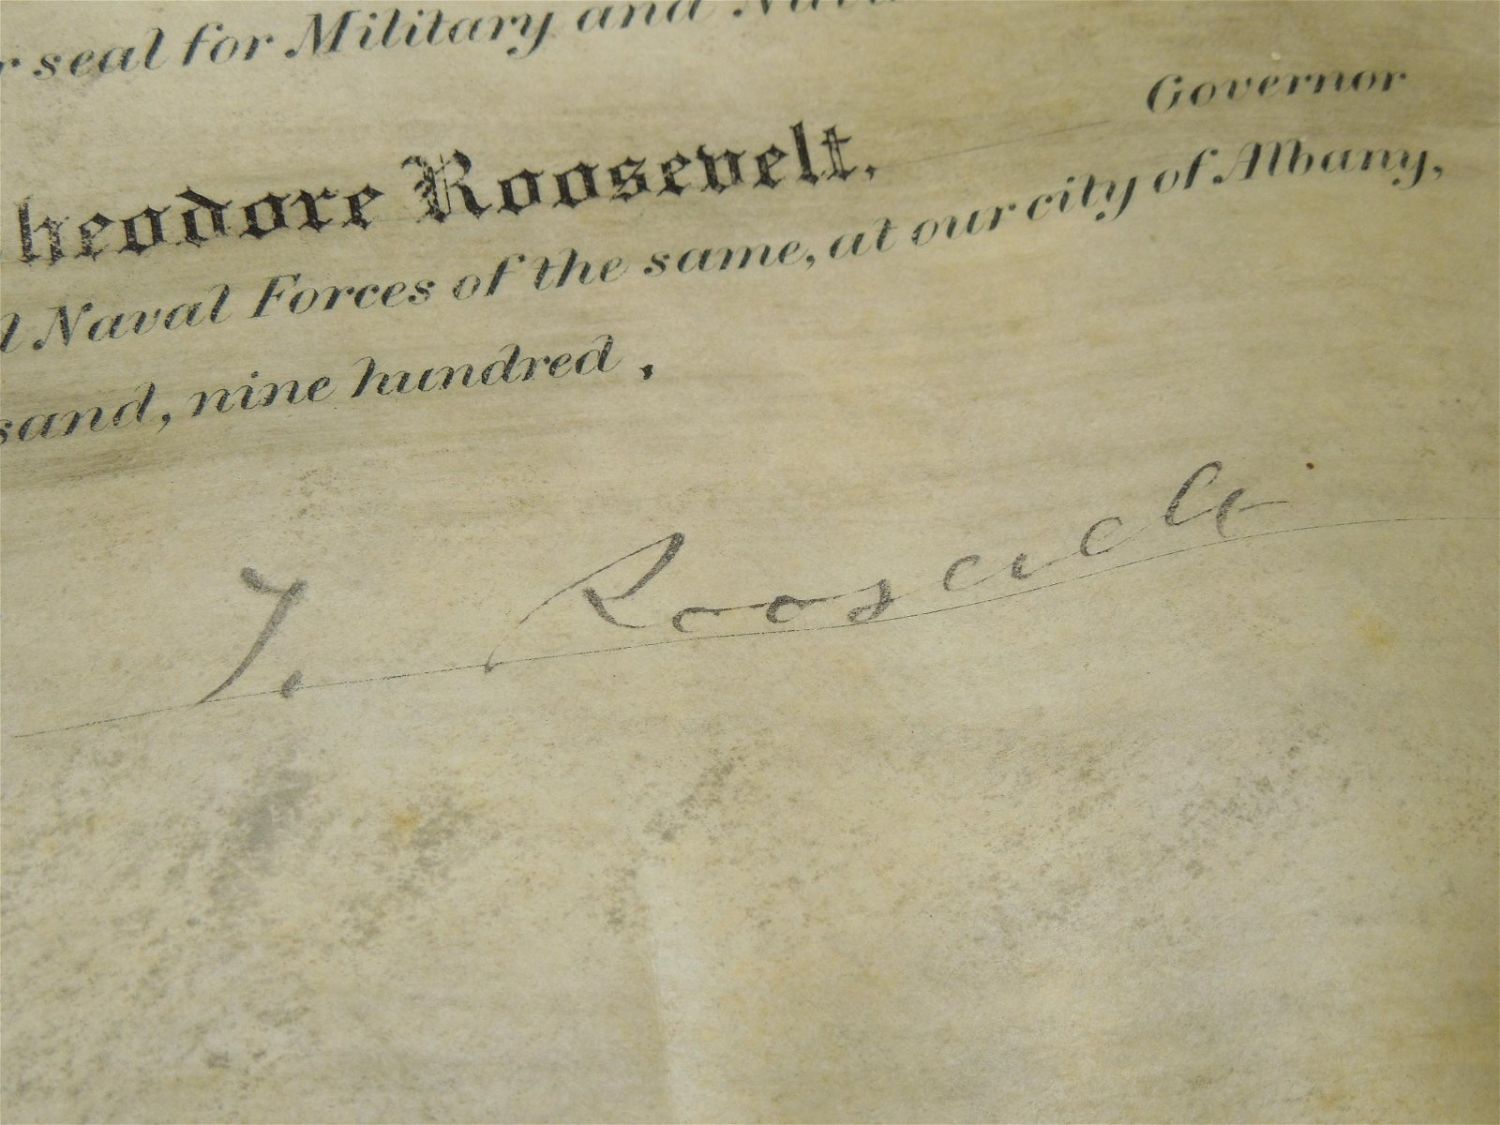 r seal for Military and Nava
heodore Roosevelt, Governor
l Naval Forces of the same, at our city of Albany,
sand, nine hundred ,
T. Roosevelt